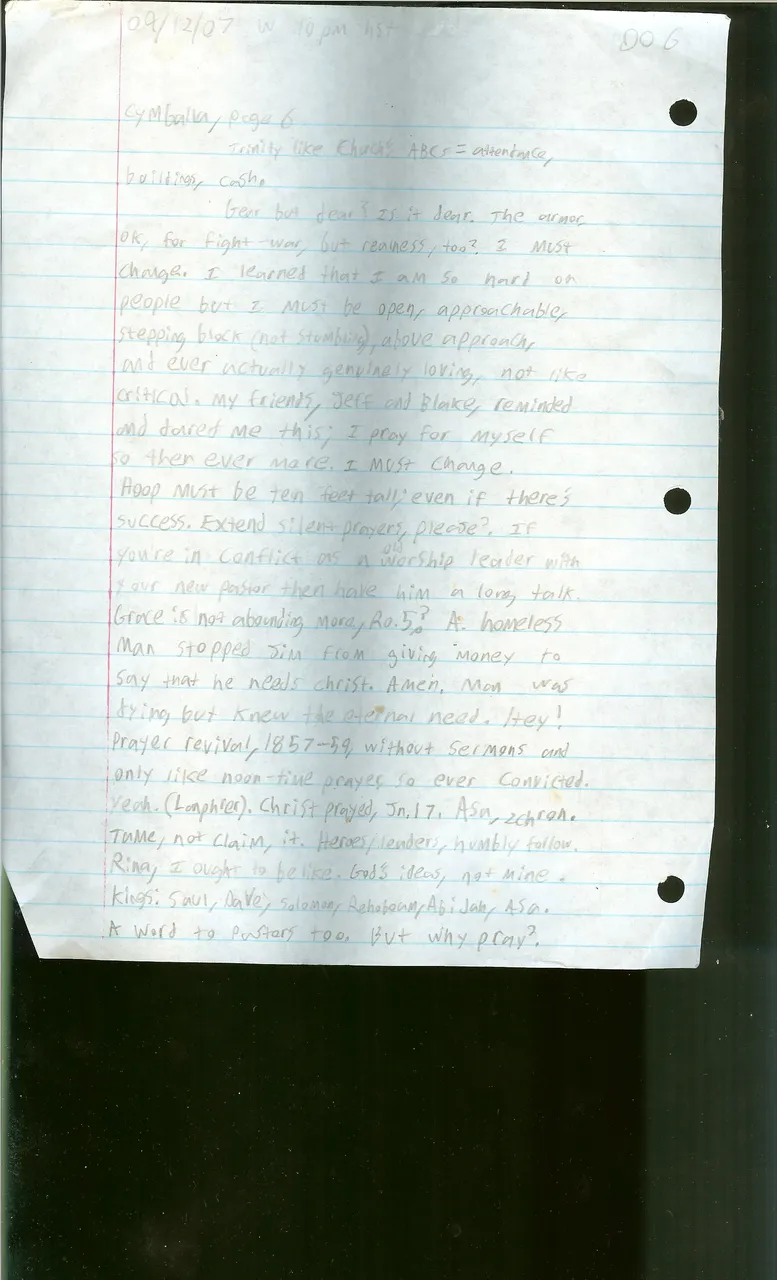 09/12/07 W 10 pm hst DO 6
Cymballa, page 6
Trinity like Church's ABCs = attendance,
buildings, cash.
Gear but dear? Is it dear. The armor,
OK, for fight-war, but realness, too? I must
change. I learned that I am so hard on
people but I must be open, approachable,
stepping block (not stumbling), above approach,
and ever actually genuinely loving, not like
critical. My friends, Jeff and Blake, reminded
and dared me this; I pray for myself
so then ever more. I must change.
Hoop must be ten feet tall, even if there's
success. Extend silent prayers, please?. If
you're in conflict as a old worship leader with
your new pastor then have him a long talk.
Grace is not abounding more, Ro. 5?. A homeless
man stopped Jim from giving money to
say that he needs Christ. Amen. Man was
dying but knew the eternal need. Hey!
Prayer revival, 1857-59, without sermons and
only like noon-time prayes so ever convicted.
Yeah. (Lanphier). Christ prayed, Jn. 17. Asa, 2chron.
Tame, not claim, it. Heroes/leaders, humbly follow.
Ring, I ought to be like. God's ideas, not mine.
Kings: Saul, Dave, Solomon, Rehoboam, Abijah, Asa.
A word to pastors too. But why pray?.